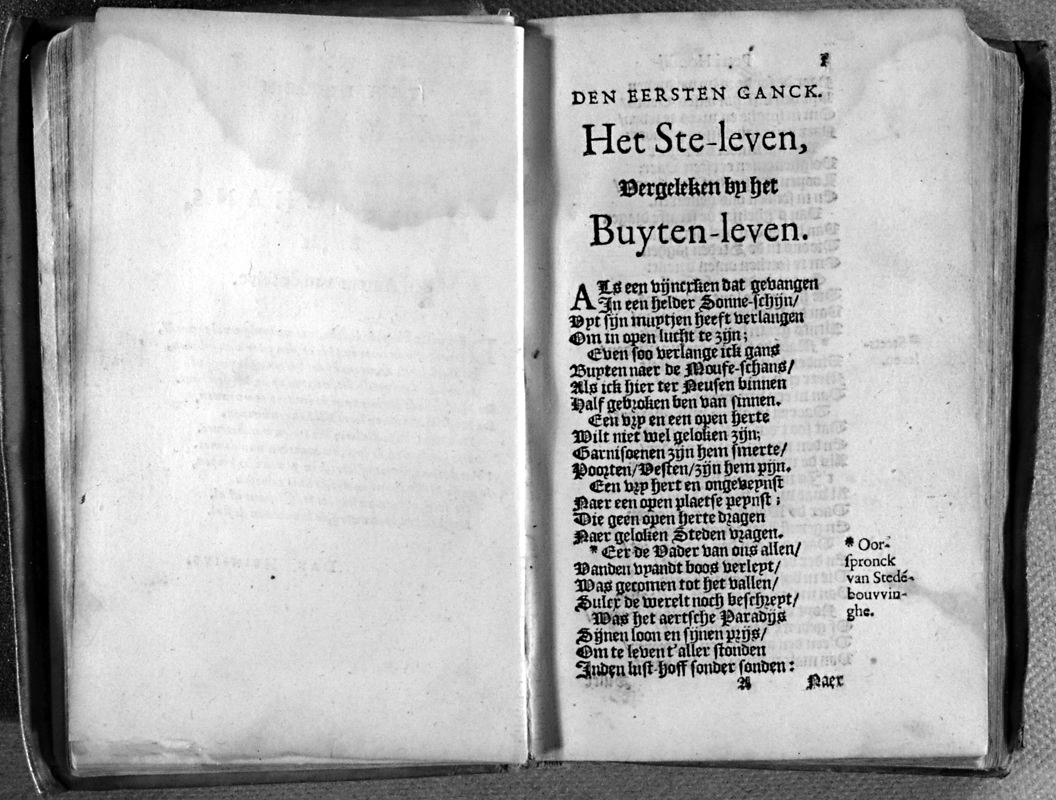 DEN EERSTEN GANCK.
Het Ste-leven,
Vergeleken by het
Buyten-leven.
ALs een vijncrken dat gevangen
In een helder Sonne-schijn/
Vyt sijn muytjen heeft verlangen
Om in open lucht te zijn;
Even soo verlange ick gans
Buyten naer de Moufe-schans/
Als ick hier ter Neusen binnen
Half gebroken ben van sinnen.
Een vry en een open herte
Wilt niet wel geloken zijn;
Garnisoenen zijn hem smerte/
Poorten/Vesten/zijn hem pijn.
Een vry hert en ongeveynst
Naer een open plaetse peynst;
Die geen open herte dragen
Naer geloken Steden vragen.
* Eer de Vader van ons allen/
Vanden vyandt boos verleyt/
Was gecomen tot het vallen/
Sulcx de werelt noch beschreyt/
Was het aertsche Paradijs
Sijnen loon en sijnen prijs/
Om te leven t'aller stonden
Inden lust-hoff sonder sonden:
* Oor-
spronck
van Stedé-
bouvvin-
ghe.
A Naer